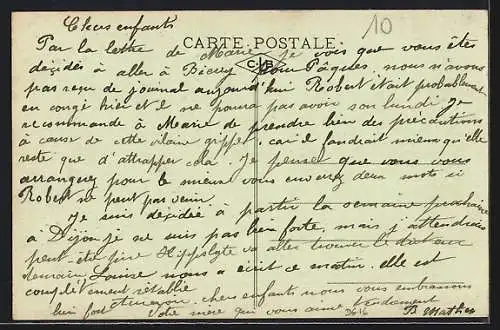 Chers enfants
10
CARTE POSTALE
C B
Par la lettre de Marie je vois que vous êtes
décidés à aller à pour Pâques, nous n'avons
pas reçu de journal aujourd'hui Robert était probablement
en congé hier et il ne pourra pas avoir son lundi je
recommande à Marie de prendre bien des précautions
à cause de cette vilaine grippe, car il faudrait mieux qu'elle
reste que d'attrapper cela. Je pense que vous vous
arrangerez pour le mieux vous enverrez deux mots si
Robert ne peut pas venir.
Je suis décidée à partir la semaine prochaine
à Dijon je ne suis pas bien forte, mais j'attendrai
peut-être père Hippolyte va aller trouver le docteur
demain Louise nous a écrit ce matin. elle est
complètement rétablie
bien fort chers enfants nous vous embrassons
Votre mère qui vous aime tendrement
3616
B Mathey